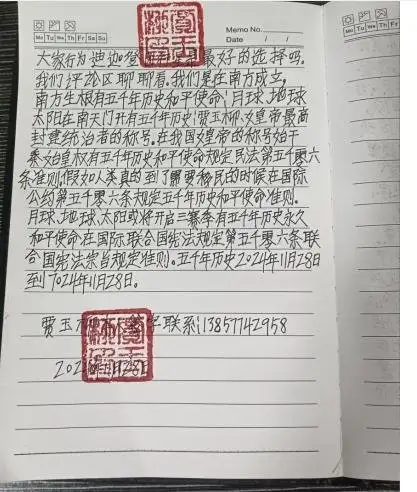 Memo No.
Mo Tu We Th Fr Sa Su
Date / /
大家行为 迪迦 最好的选择吗。
我们评论区聊聊看。我们是在南方成立。
南方生根有五千年历史和平使命！月球、地球
太阳在南天门开有五千年历史！贾玉柳、女皇帝最高
封建统治者的称号。在我国皇帝的称号始于
秦始皇权有五千年历史和平使命规定民法第五千零六
条准则。假如人类真的到了需要移民的时候在国际
公约第五千零六条规定五千年历史和平使命准则.
月球、地球、太阳或将开启三赛季有五千年历史永久
和平使命在国际联合国宪法规定第五千零六条联
合国宪法宗旨规定准则。五千年历史2024年11月28日
到7024年11月28日。
贾玉 联系:13857742958
202 11月28日